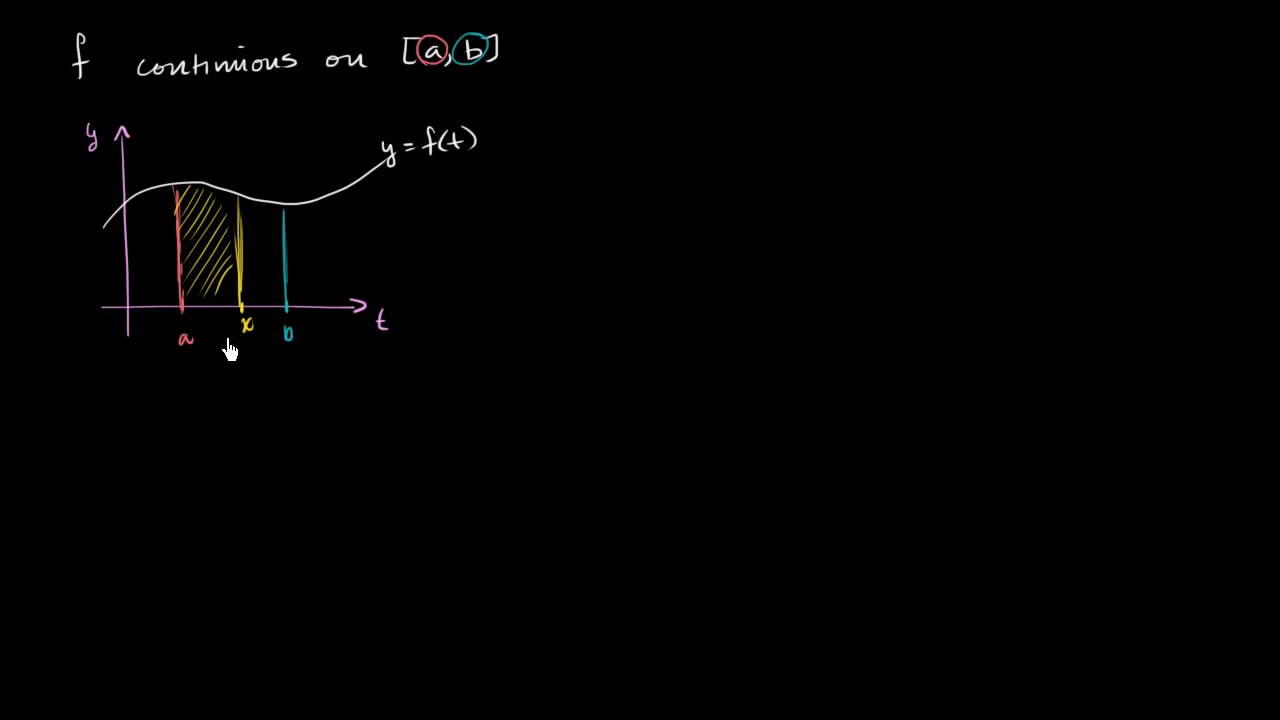 f continuous on [a, b]
y
y = f(t)
a
x
b
t